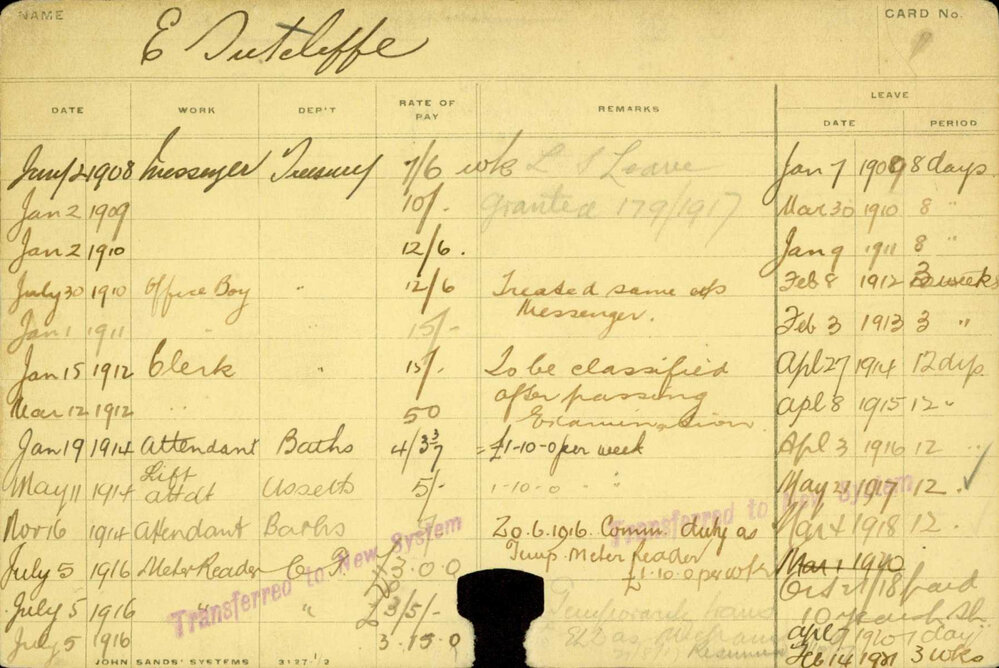 NAME
CARD No.
E Sutcliffe
DATE WORK DEP'T RATE OF PAY REMARKS LEAVE
DATE PERIOD
1908 Messenger Treasury 7/6 wk L S Leave Jan 7 1909 8 days
Jan 2 1909 10/- Granted 179/1917 Mar 30 1910 8 "
Jan 2 1910 12/6. Jan 9 1911 8 "
July 30 1910 Office Boy " 12/6 Treated same as Feb 8 1912 3 weeks
Messenger.
Jan 1 1911 " 15/- Feb 3 1913 3 "
Jan 15 1912 Clerk " 15/- To be classified Apl 27 1914 12 dys
after passing
Mar 12 1912 " 50 Examination. Apl 8 1915 12 "
Jan 19 1914 Attendant Baths 4/3 3/7 = £1-10-0 per week Apl 3 1916 12 "
May 11 1914 Lift Attdt Assetts 5/- 1-10-0 " " May 2 1917 12 ✓
Nov 16 1914 Attendant Baths 20.6.1916. Comm. duty as Apl 4 1918 12.
Temp. Meter Reader
July 5 1916 Meter Reader £1-10-0 per wk Mar 1 1920
Oct 21/18 paid
July 5 1916 " " £3/5/- Temporary hand
July 5 1916 3.15.0 as Apl 9 1920 1 day
Feb 14 1921 3 wks
Transferred to New System
Transferred to New System
JOHN SANDS' SYSTEMS 3127 1/2